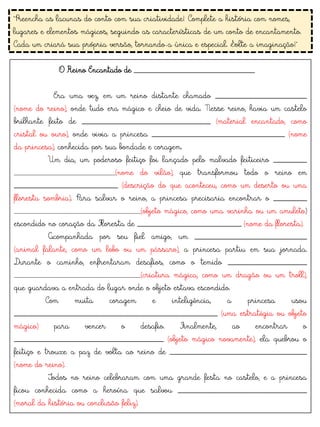 "Preencha as lacunas do conto com sua criatividade! Complete a história com nomes,
lugares e elementos mágicos, seguindo as características de um conto de encantamento.
Cada um criará sua própria versão, tornando-a única e especial. Solte a imaginação!"
O Reino Encantado de ______________________
Era uma vez, em um reino distante chamado ____________________
[nome do reino], onde tudo era mágico e cheio de vida. Nesse reino, havia um castelo
brilhante feito de ____________________________ [material encantado, como
cristal ou ouro], onde vivia a princesa ____________________________ [nome
da princesa], conhecida por sua bondade e coragem.
Um dia, um poderoso feitiço foi lançado pelo malvado feiticeiro _______
______________________[nome do vilão], que transformou todo o reino em
______________________ [descrição do que aconteceu, como um deserto ou uma
floresta sombria]. Para salvar o reino, a princesa precisaria encontrar o _______
____________________________[objeto mágico, como uma varinha ou um amuleto]
escondido no coração da Floresta de ______________________ [nome da floresta].
Acompanhada por seu fiel amigo, um ________________________
[animal falante, como um lobo ou um pássaro], a princesa partiu em sua jornada.
Durante o caminho, enfrentaram desafios, como o temido ________________
____________________________[criatura mágica, como um dragão ou um troll],
que guardava a entrada do lugar onde o objeto estava escondido.
Com muita coragem e inteligência, a princesa usou
____________________________________________ [uma estratégia ou objeto
mágico] para vencer o desafio. Finalmente, ao encontrar o
________________________________ [objeto mágico novamente], ela quebrou o
feitiço e trouxe a paz de volta ao reino de ______________________________
[nome do reino].
Todos no reino celebraram com uma grande festa no castelo, e a princesa
ficou conhecida como a heroína que salvou ____________________________
[moral da história ou conclusão feliz].